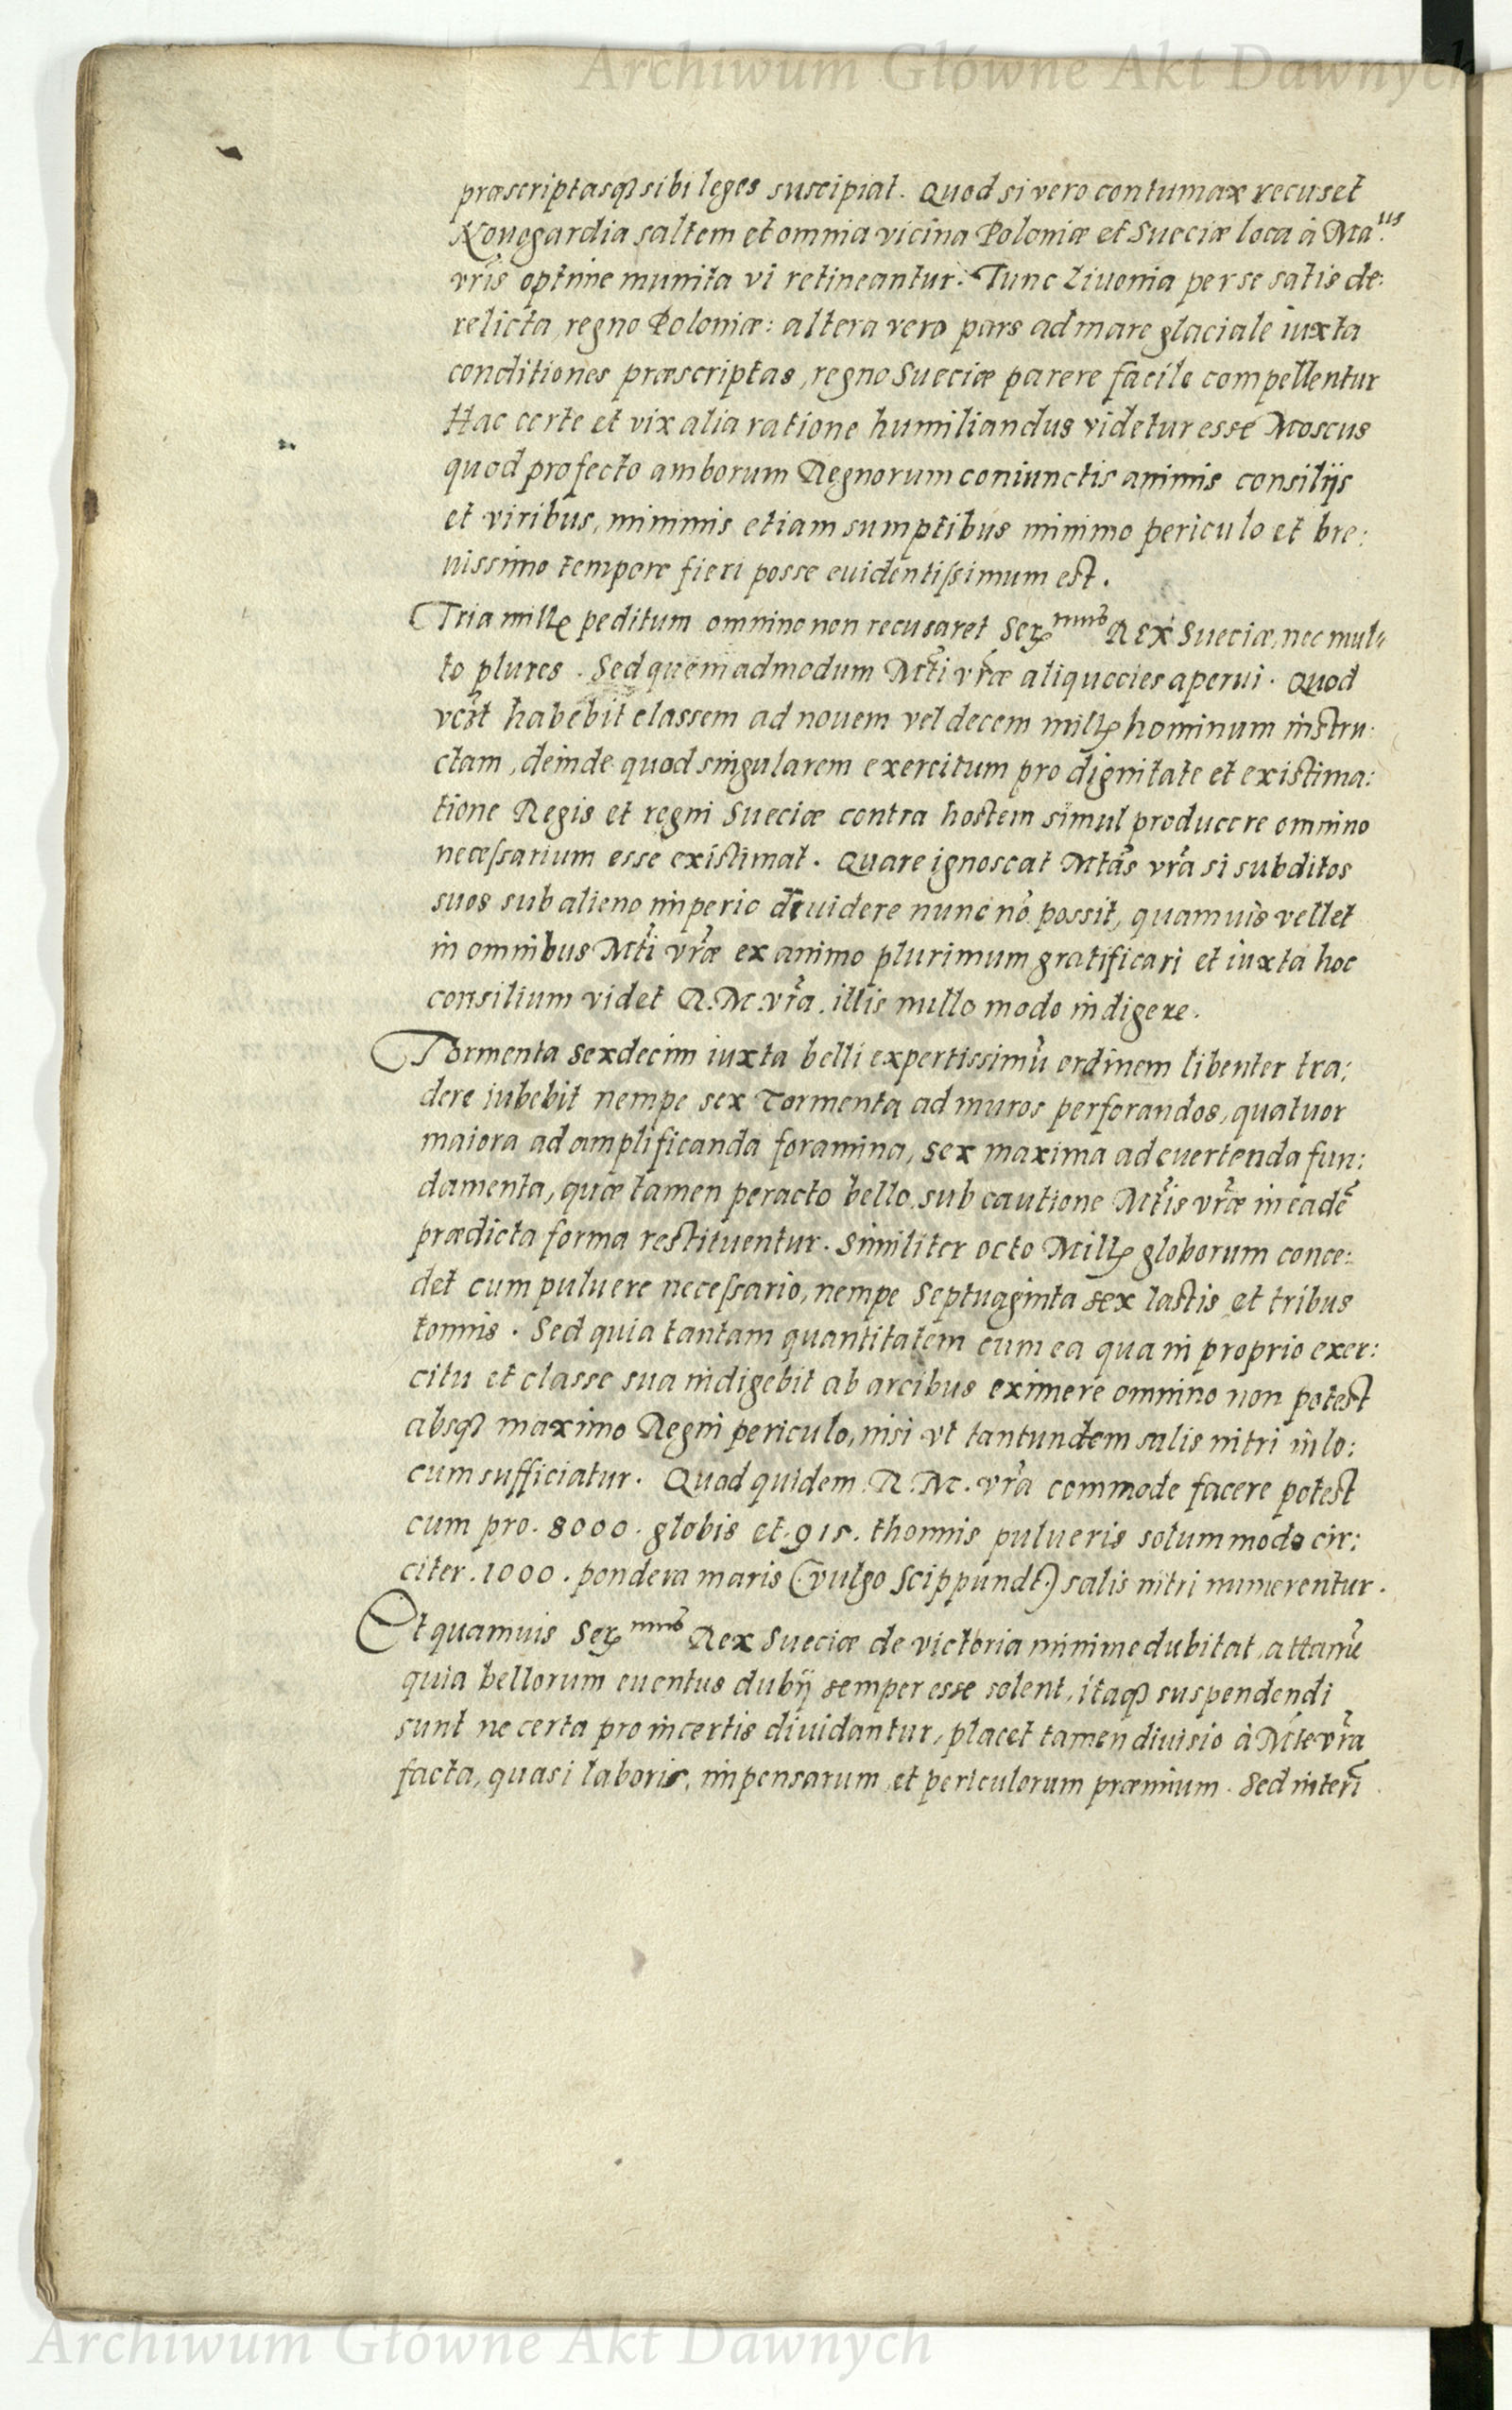 Archiwum Główne Akt Dawnych
præscriptasq̃ sibi leges suscipiat. Quod si vero contumax recuset
Nouogardia saltem et omnia vicina Poloniæ et Sueciæ loca à Ma.tis
vr̃is optime munita vi retineantur. Tunc Liuonia per se satis de:
relicta, regno Poloniæ: altera vero pars ad mare glaciale iuxta
conditiones præscriptas, regno Sueciæ parere facile compellentur
Hac certe et vix alia ratione humiliandus videtur esse Moscus
quod profecto amborum Regnorum coniunctis animis consilijs
et viribus, minimis etiam sumptibus minimo periculo et bre:
uissimo tempore fieri posse euidentissimum est.
Tria mille peditum omnino non recusaret Ser.mus Rex Sueciæ, nec mul:
to plures. Sed quem admodum Mt̃i vr̃æ aliquocies aperui. Quod
habebit classem ad nouem vel decem mille hominum instru:
ctam, deinde quod singularem exercitum pro dignitate et existima:
tione Regis et regni Sueciæ contra hostem simul producere omnino
necessarium esse existimat. Quare ignoscat Mtãs vr̃a si subditos
suos sub alieno imperio diuidere nunc nõ possit, quamuis vellet
in omnibus Mt̃i vr̃æ ex animo plurimum gratificari et iuxta hoc
consilium videt R.M.vr̃a. illis nullo modo indigere.
Tormenta sexdecim iuxta belli expertissimũ ordinem libenter tra:
dere iubebit nempe sex Tormenta ad muros perforandos, quatuor
maiora ad amplificanda foramina, sex maxima ad euertenda fun:
damenta, quæ tamen peracto bello, sub cautione Mt̃is vr̃æ in eadẽ
prædicta forma restituentur. Similiter octo Mille globorum conce:
det cum puluere necessario, nempe Septuaginta sex lastis et tribus
tonnis. Sed quia tantam quantitatem cum ea qua in proprio exer:
citu et classe sua indigebit ab arcibus eximere omnino non potest
absq̃ maximo Regni periculo, nisi vt tantundem salis nitri in lo:
cum sufficiatur. Quod quidem R.M. vr̃a commode facere potest
cum pro. 8000. globis et. 915. thonnis pulueris solummodo cir:
citer. 1000. pondera maris (vulgo Scippundt.) salis nitri numerentur.
Et quamuis Ser.mus Rex Sueciæ de victoria minime dubitat, attamẽ
quia bellorum euentus dubij semper esse solent, itaq̃ suspendendi
sunt ne certa pro incertis diuidantur, placet tamen diuisio à Mte vr̃a
facta, quasi laboris, impensarum, et periculorum præmium. Sed interĩ
Archiwum Główne Akt Dawnych